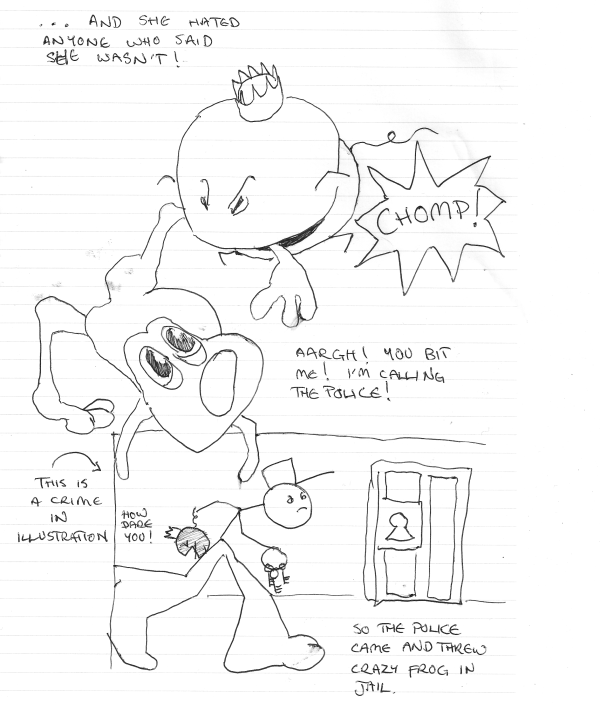 ... AND SHE HATED
ANYONE WHO SAID
SHE WASN'T!
CHOMP!
AARGH! YOU BIT
ME! I'M CALLING
THE POLICE!
THIS IS
A CRIME
IN
ILLUSTRATION
HOW
DARE
YOU!
SO THE POLICE
CAME AND THREW
CRAZY FROG IN
JAIL.